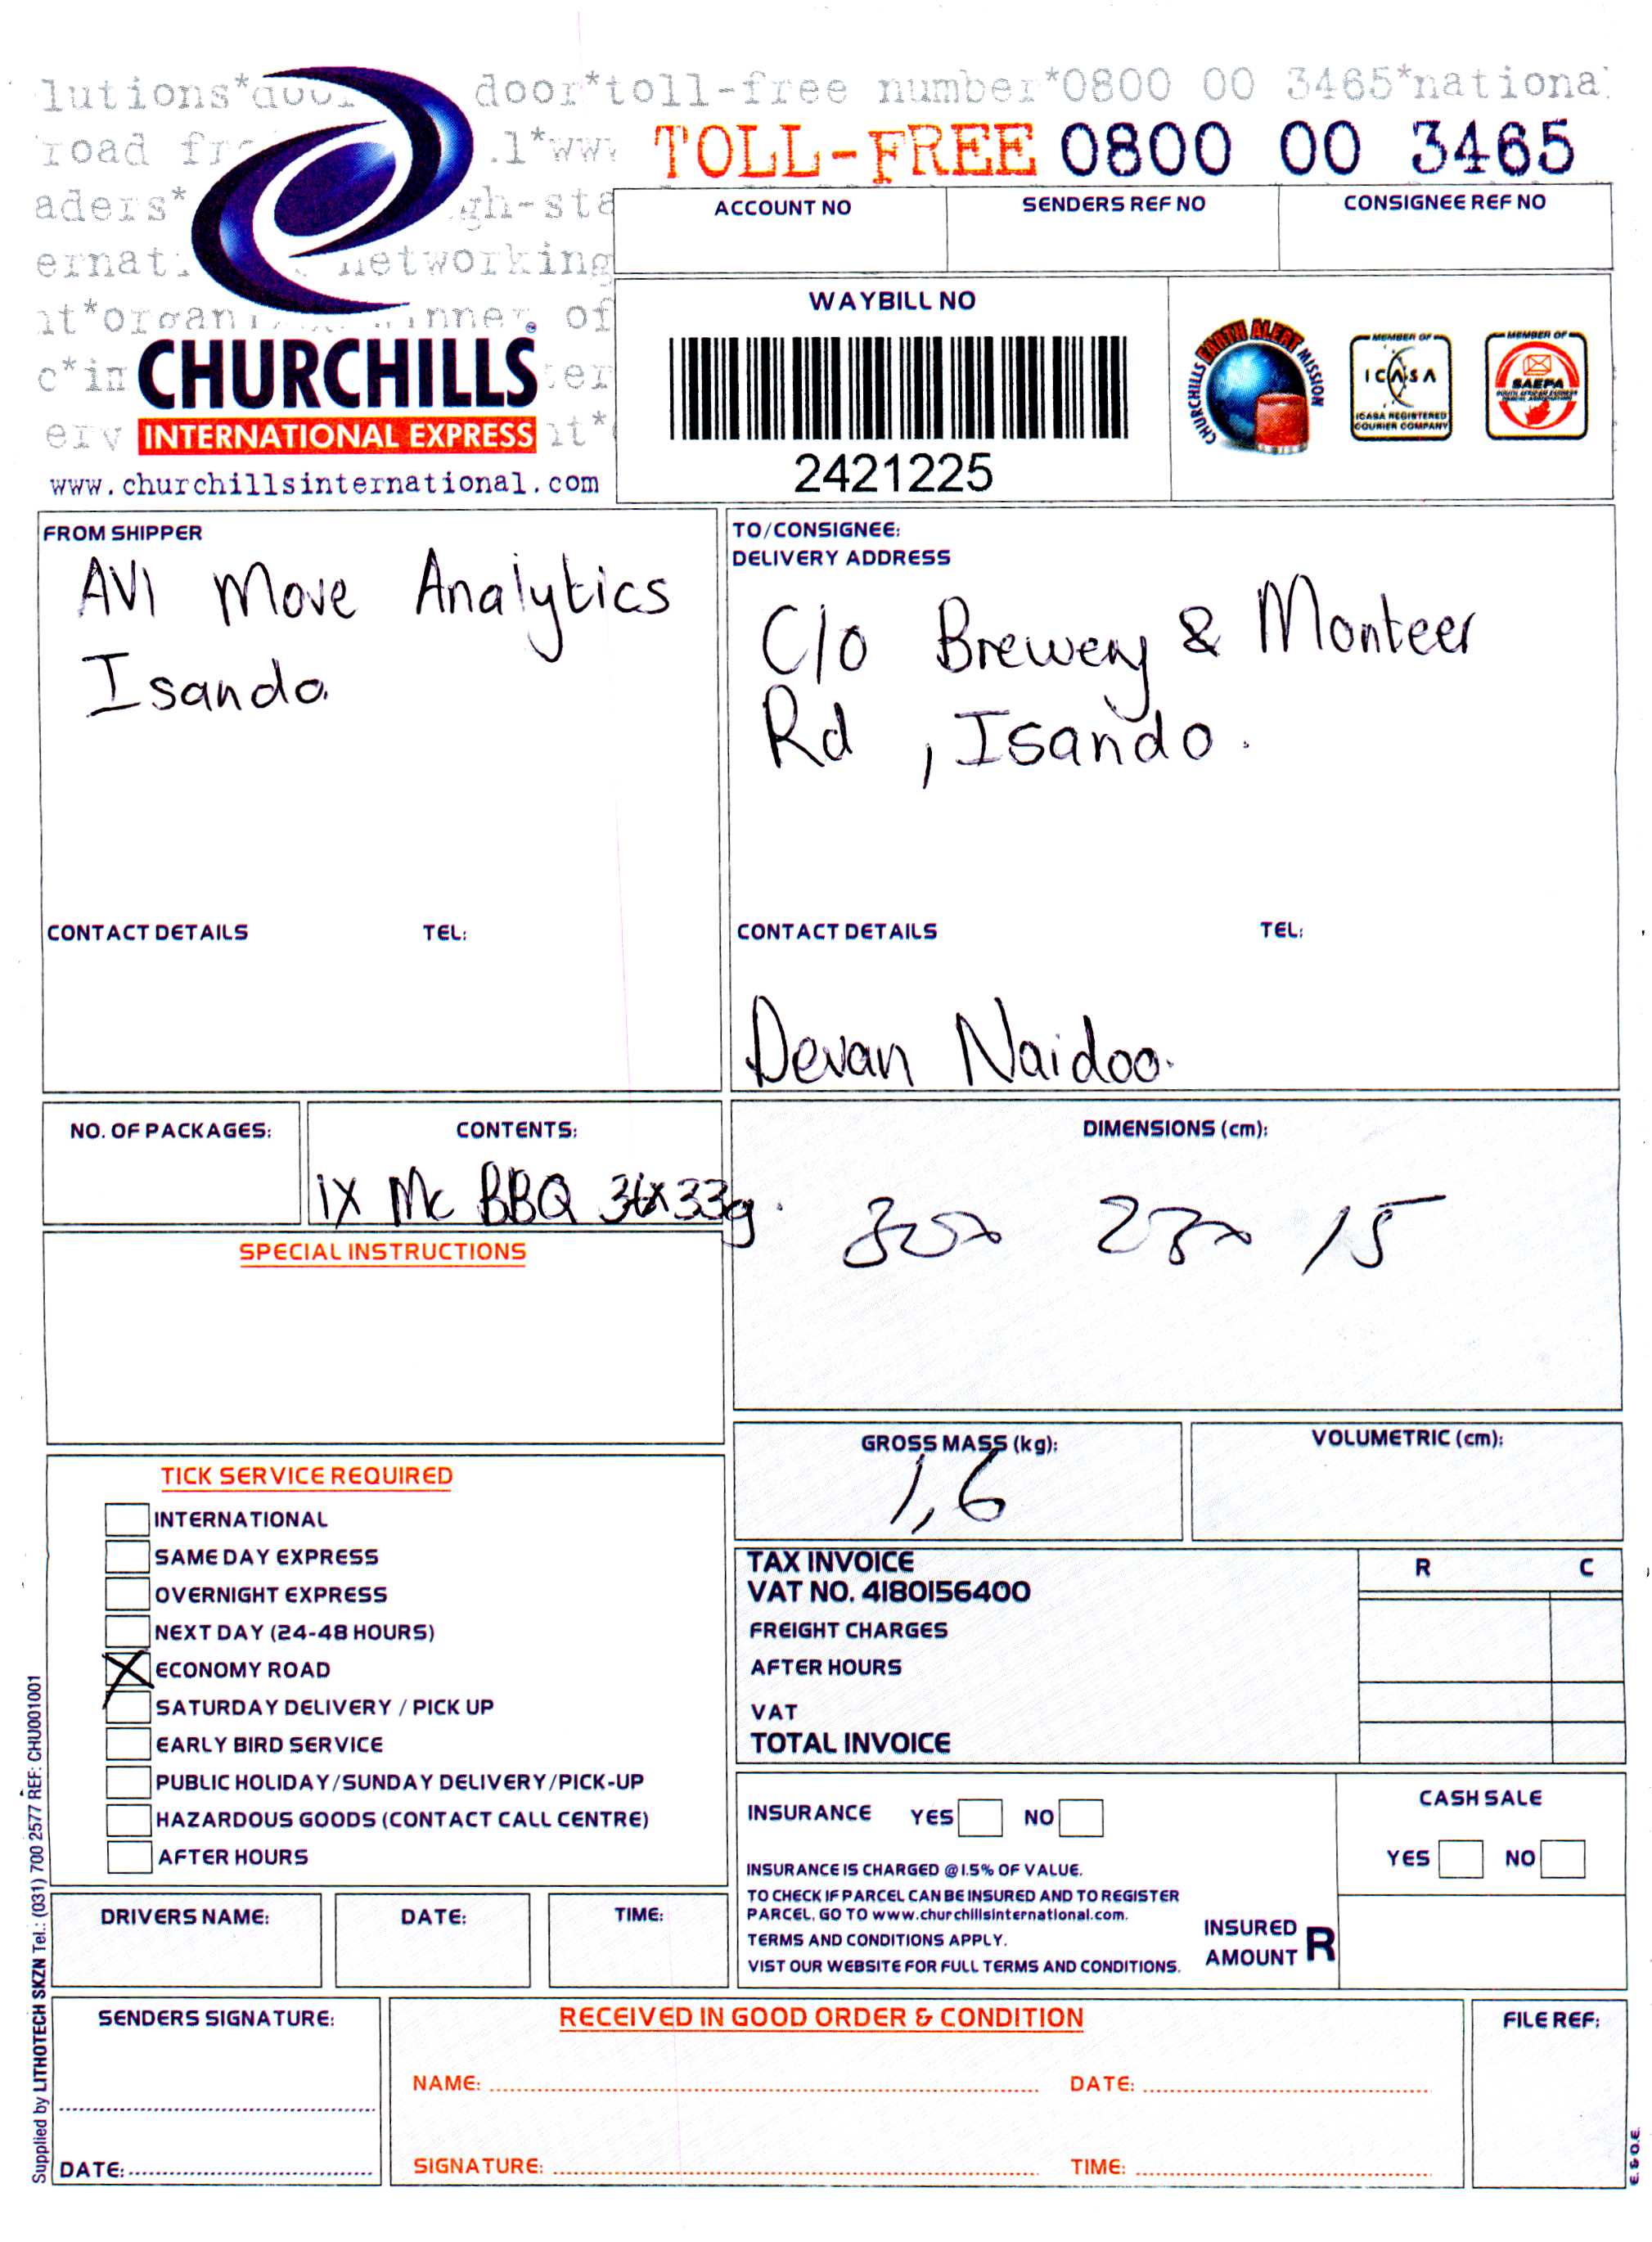 lutions*door door*toll-free number*0800 00 3465*national
road fr .l*www TOLL-FREE 0800 00 3465
aders* gh-sta
ernati networking
nt*organi inner of
c*in ter
erv nt*
CHURCHILLS
INTERNATIONAL EXPRESS
www.churchillsinternational.com
ACCOUNT NO SENDERS REF NO CONSIGNEE REF NO
WAYBILL NO
2421225
CHURCHILLS EARTH ALERT MISSION
MEMBER OF
ICASA
ICASA REGISTERED
COURIER COMPANY
MEMBER OF
SAEPA
FROM SHIPPER
AVI Move Analytics
Isando.
CONTACT DETAILS TEL:
TO/CONSIGNEE:
DELIVERY ADDRESS
C/o Brewery & Monteer
Rd , Isando.
CONTACT DETAILS TEL:
Devan Naidoo.
NO. OF PACKAGES:
CONTENTS:
1X Mc BBQ 36x33g.
DIMENSIONS (cm):
15
SPECIAL INSTRUCTIONS
GROSS MASS (kg):
1,6
VOLUMETRIC (cm):
TICK SERVICE REQUIRED
INTERNATIONAL
SAME DAY EXPRESS
OVERNIGHT EXPRESS
NEXT DAY (24-48 HOURS)
X ECONOMY ROAD
SATURDAY DELIVERY / PICK UP
EARLY BIRD SERVICE
PUBLIC HOLIDAY/SUNDAY DELIVERY/PICK-UP
HAZARDOUS GOODS (CONTACT CALL CENTRE)
AFTER HOURS
TAX INVOICE R C
VAT NO. 4180156400
FREIGHT CHARGES
AFTER HOURS
VAT
TOTAL INVOICE
INSURANCE YES NO
INSURANCE IS CHARGED @1.5% OF VALUE.
TO CHECK IF PARCEL CAN BE INSURED AND TO REGISTER
PARCEL, GO TO www.churchillsinternational.com.
TERMS AND CONDITIONS APPLY.
VIST OUR WEBSITE FOR FULL TERMS AND CONDITIONS.
INSURED
AMOUNT R
CASH SALE
YES NO
DRIVERS NAME: DATE: TIME:
SENDERS SIGNATURE:
DATE:
RECEIVED IN GOOD ORDER & CONDITION
NAME: DATE:
SIGNATURE: TIME:
FILE REF:
Supplied by LITHOTECH SKZN Tel.: (031) 700 2577 REF: CHU001001
E. & O.E.